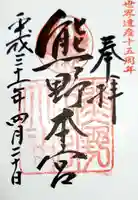 世界遺産十五周年
奉拝
熊野本宮
平成三十一年四月三十日